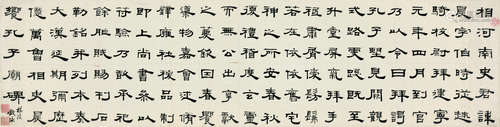 相河南史君諱
晨字伯時從越
騎校尉拜建寧
元年四月到官
乃以令日拜謁
孔子望見闕觀
式路虔跽既至
升堂屏氣拜手
祗肅屑僾髣髴
若在依依舊宅
神之所安春秋
復禮稽度玄靈
而無公出享獻
之薦欽因春饗
導物嘉會述修
璧雍社稷品制
即上尚書參以
符驗乃敢承祀
餘胙賦賜刊石
勒銘并列本奏
大漢延期彌歷
億萬魯相史晨
饗孔子廟碑